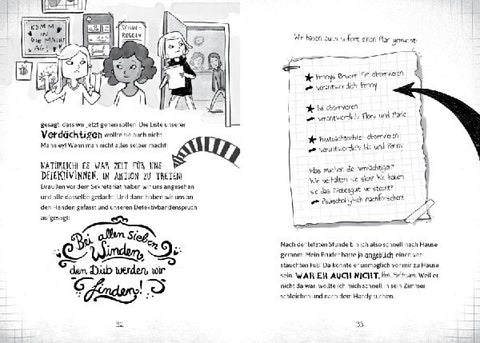 KOMM
IN DIE
AG!
SCHUL-
REGELN
gesagt, dass wir jetzt gehen sollen. Die Liste unserer
Verdächtigen wollte sie auch nicht.
Mano ey! Wenn man nicht alles selber macht!
NATÜRLICH! ES WAR ZEIT FÜR UNS
DETEKTIVINNEN, IN AKTION ZU TRETEN!
Draußen vor dem Sekretariat haben wir uns angesehen
und alle dasselbe gedacht. Und dann haben wir uns an
den Händen gefasst und unseren Detektivbandenspruch
aufgesagt:
Bei allen sieben
Winden,
den Dieb werden wir
finden!
32
Wir haben dann sofort einen Plan gemacht:
observieren
verantwortlich
observieren
verantwortlich
observieren
verantwortlich
Was machen die Verdächtigen?
Wo verhalten sie sich? Wo haben
sie das Diebesgut versteckt?
nachforschen!
Nach der letzten Stunde bin ich also schnell nach Hause
gerannt. Mein Bruder hatte ja angeblich einen ver-
stauchten Fuß. Da konnte er unmöglich vor mir zu Hause
sein. WAR ER AUCH NICHT. Hm. Seltsam. Weil er
nicht da war, wollte ich mich schnell in sein Zimmer
schleichen und nach dem Handy suchen.
33